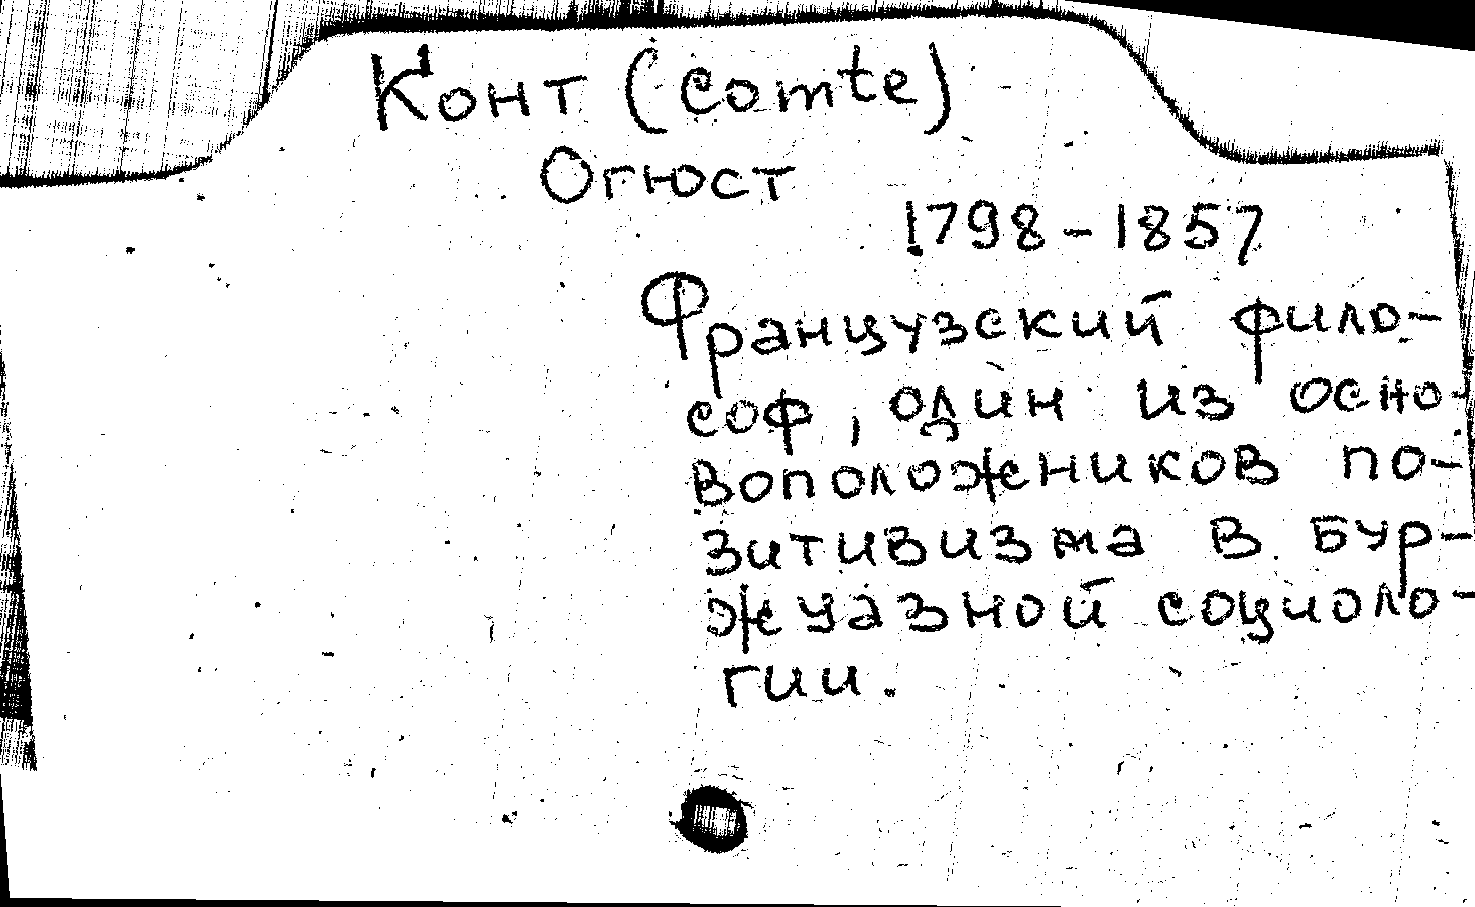 Конт (comte)
Огюст
1798-1857
Французский фило-
соф, один из осно-
воположников по-
зитивизма в бур-
жуазной социоло-
гии.